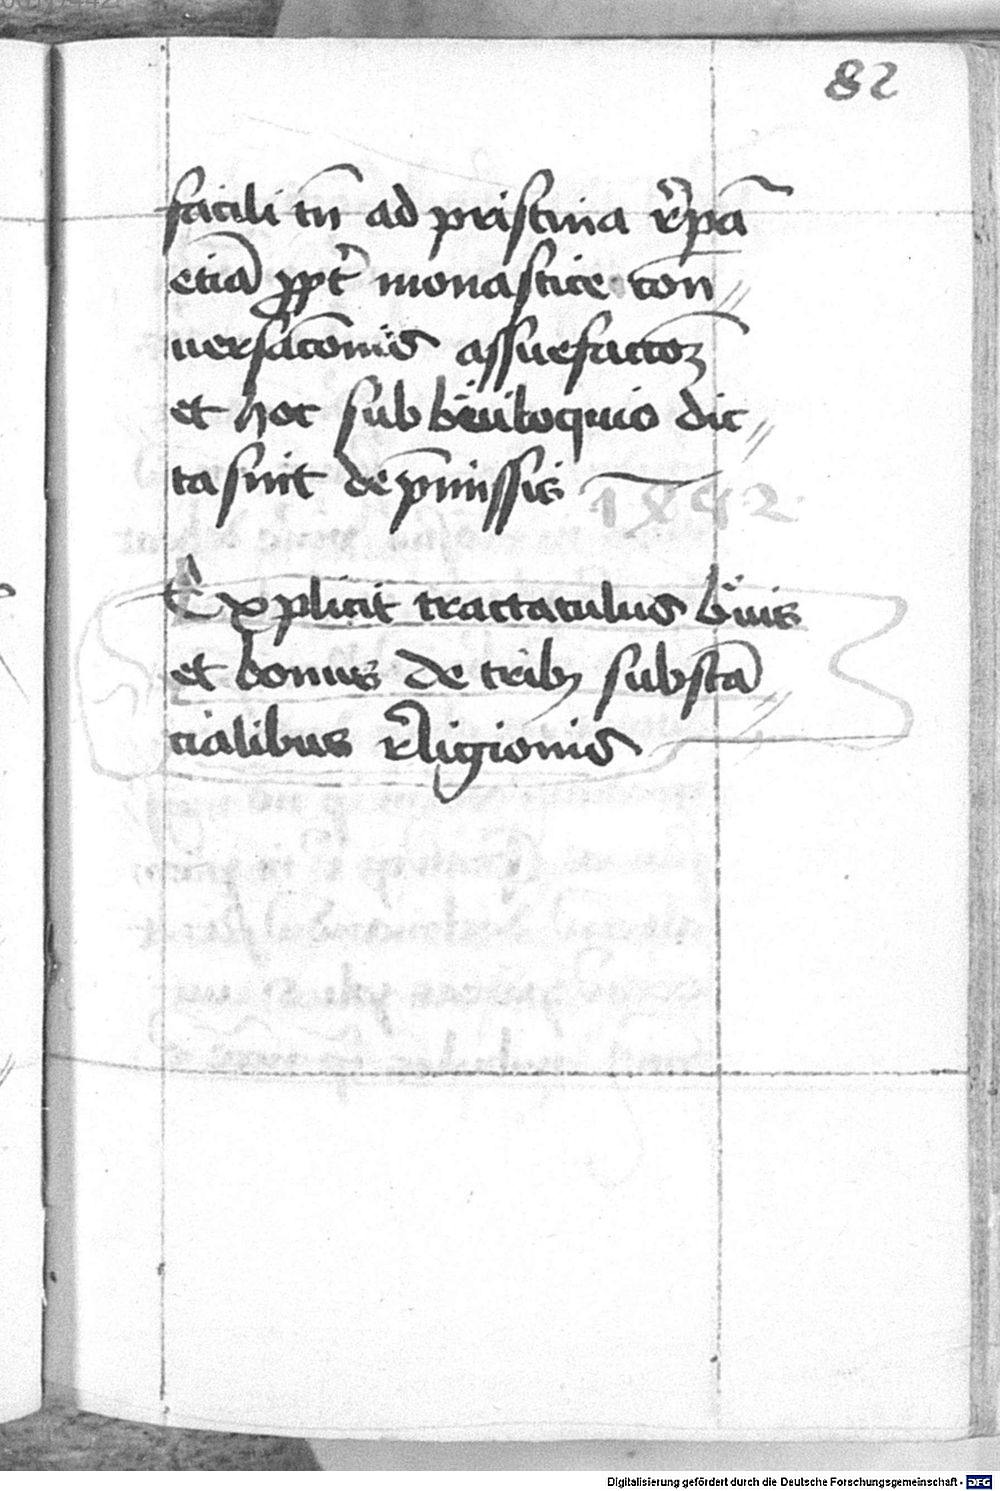 82
facili tn̄ ad pristina r̄pa̅
etia̅ ꝓpt̄ monastice con//
uersac̄onis assuefacc̄oꝫ
et hoc sub b̄iuiloquio dic//
ta sint de p̄missis
1492
Explicit tractatulus b̄uis
et bonus de tribꝫ substa̅//
cialibus r̄ligionis
Digitalisierung gefördert durch die Deutsche Forschungsgemeinschaft - DFG